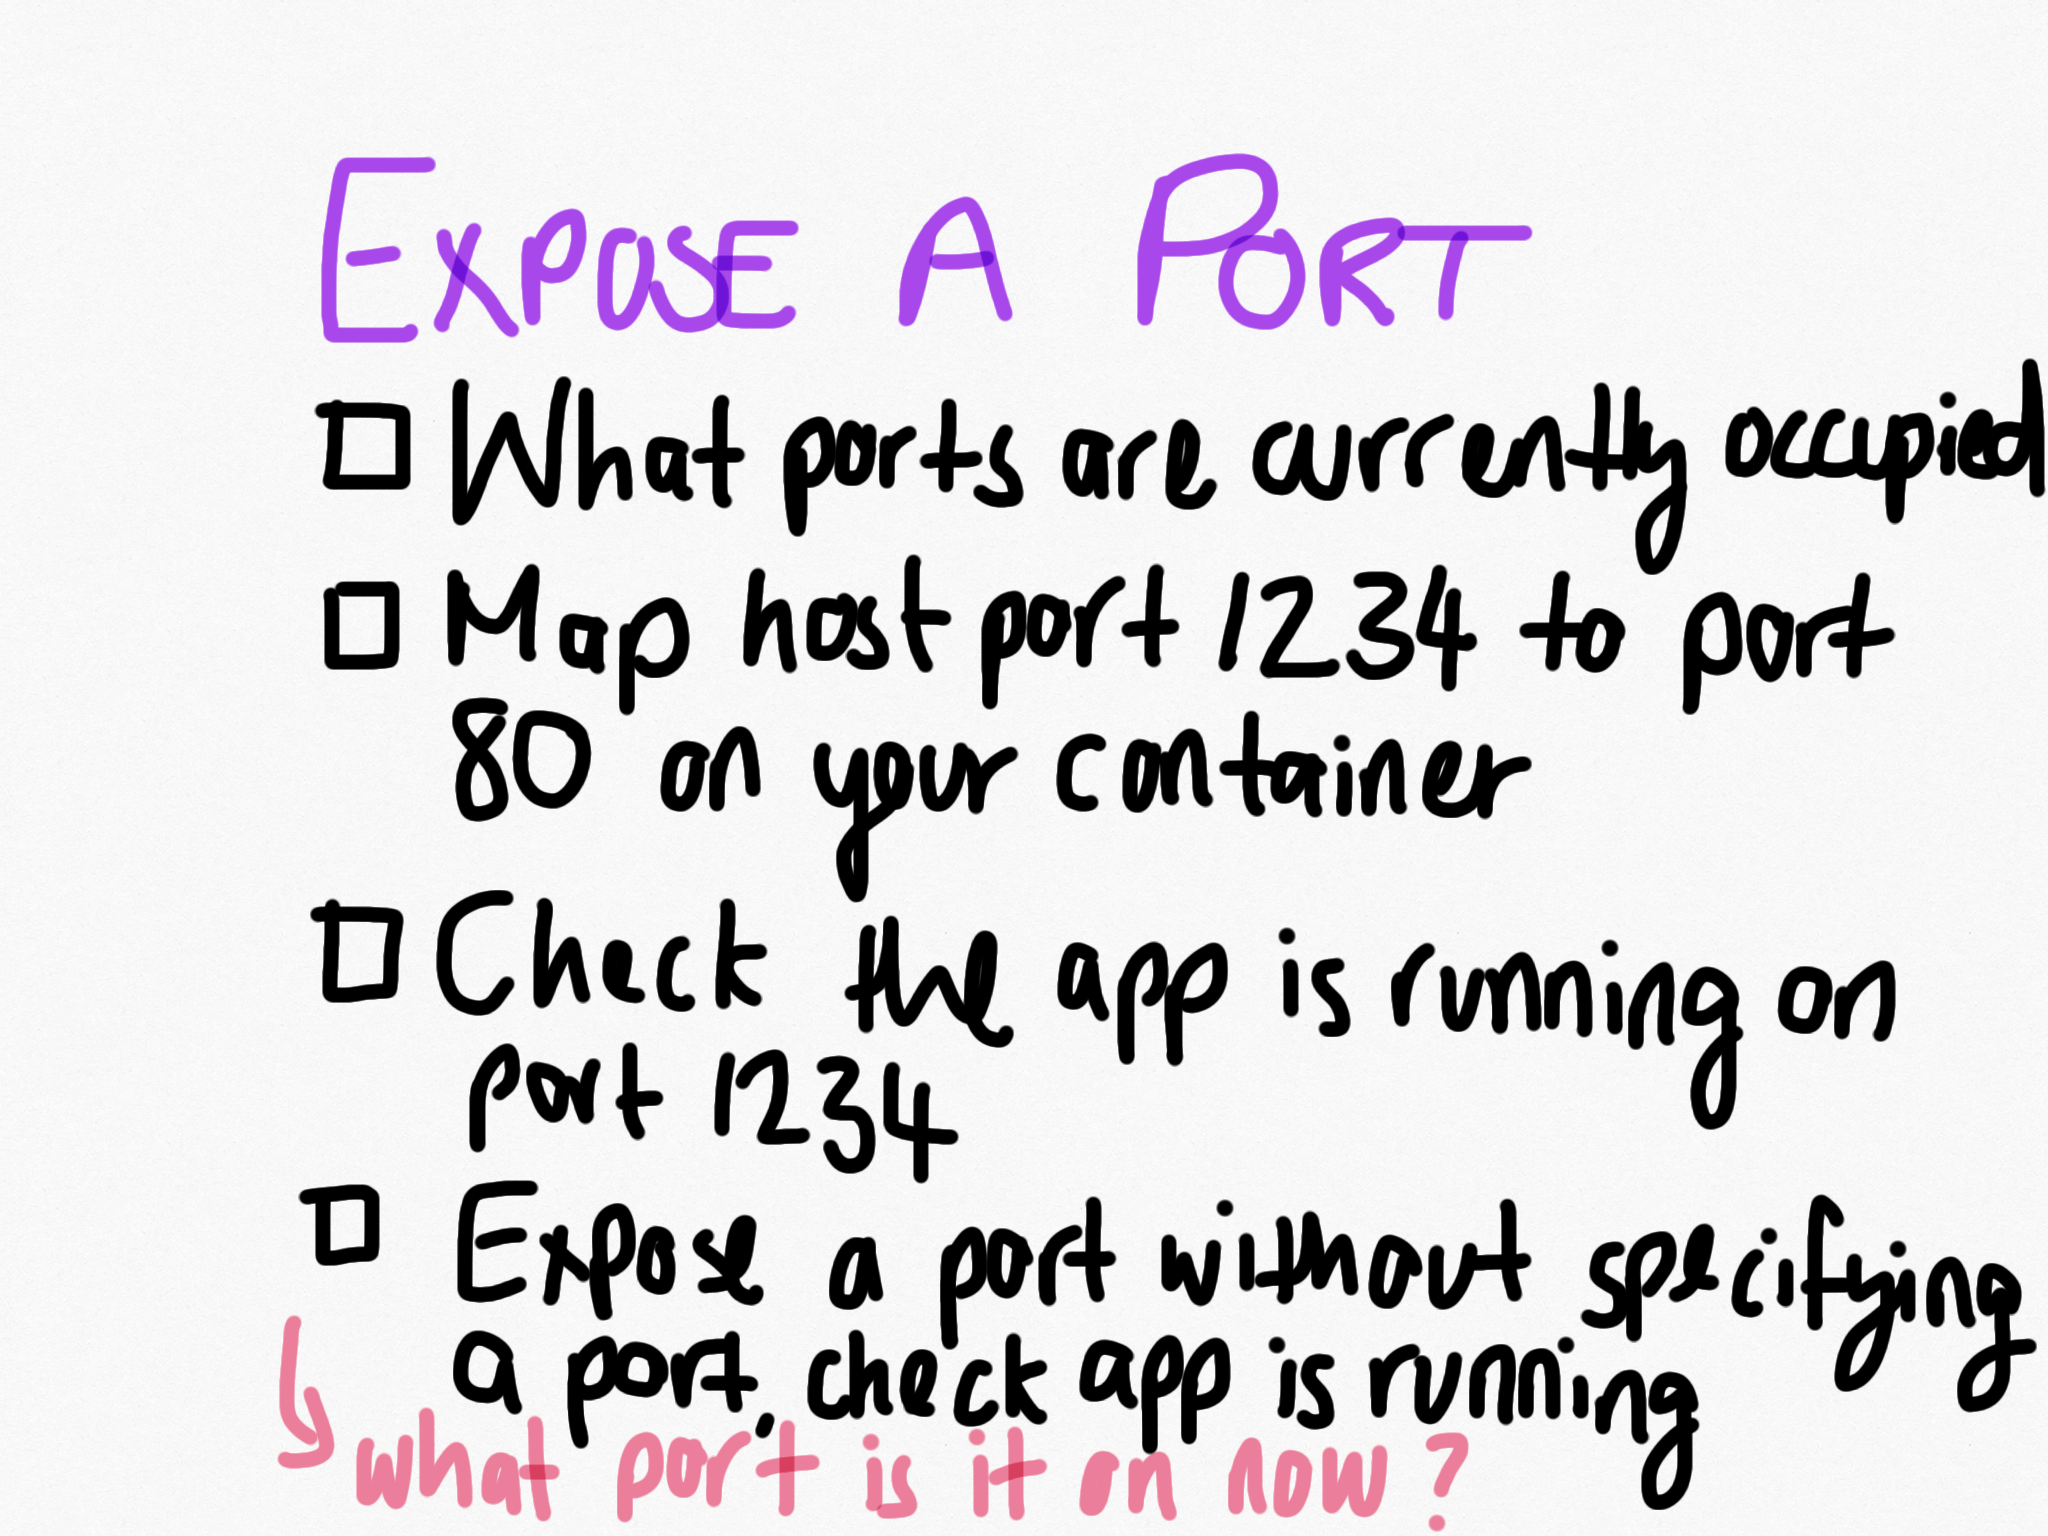 EXPOSE A PORT
What ports are currently occupied
Map host port 1234 to port
80 on your container
Check the app is running on
port 1234
Expose a port without specifying
a port, check app is running
what port is it on now?